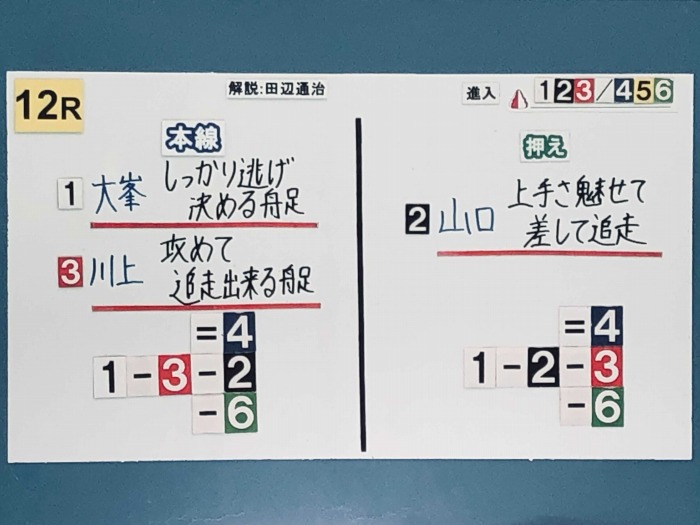 12R
解説:田辺通治
進入 123/456
本線
1 大峯 しっかり逃げ
決める舟足
3 川上 攻めて
追走出来る舟足
=4
1-3-2
-6
押え
2 山口 上手さ魅せて
差して追走
=4
1-2-3
-6